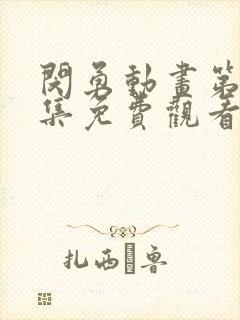 閃勇動畫第
集免費觀看
扎西 魯